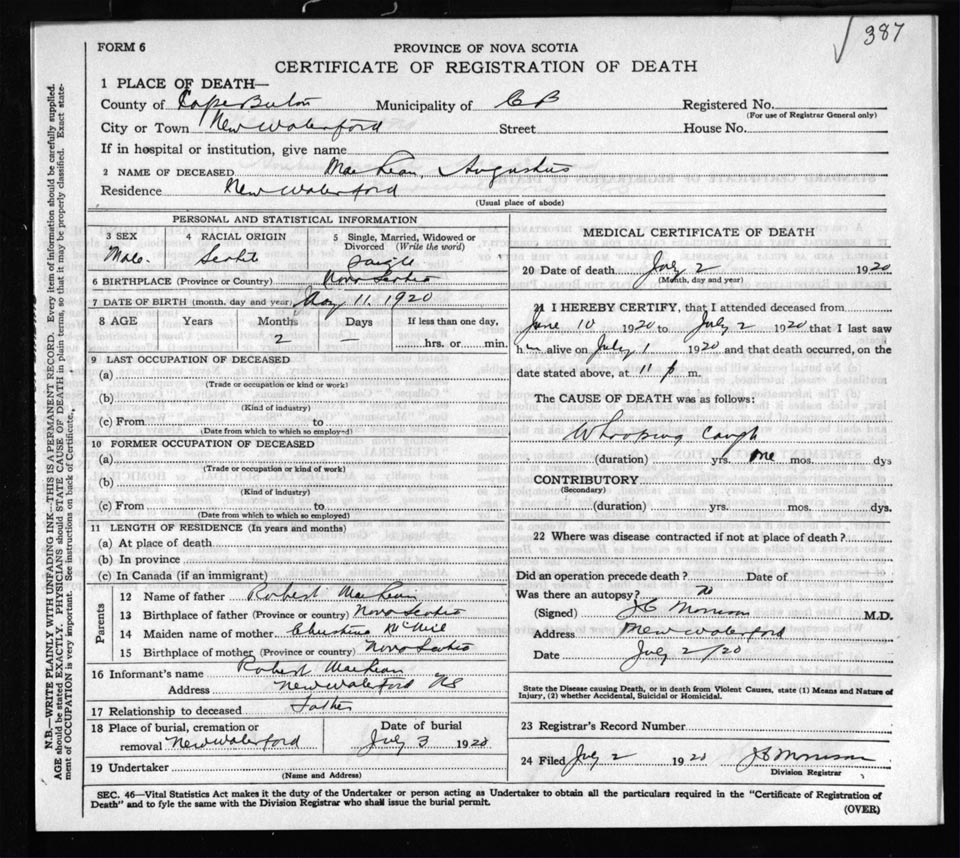 387
FORM 6
PROVINCE OF NOVA SCOTIA
CERTIFICATE OF REGISTRATION OF DEATH
1 PLACE OF DEATH—
County of Cape Breton Municipality of C B Registered No.
(For use of Registrar General only)
City or Town New Waterford Street House No.
If in hospital or institution, give name
2 NAME OF DECEASED MacLean, Augustus
Residence New Waterford
(Usual place of abode)
PERSONAL AND STATISTICAL INFORMATION
3 SEX 4 RACIAL ORIGIN 5 Single, Married, Widowed or Divorced (Write the word)
Male Scotch Single
6 BIRTHPLACE (Province or Country) Nova Scotia
7 DATE OF BIRTH (month, day and year) May 11. 1920
8 AGE Years Months Days If less than one day,
2 — hrs. or min.
9 LAST OCCUPATION OF DECEASED
(a)
(Trade or occupation or kind or work)
(b)
(Kind of industry)
(c) From to
(Date from which to which so employed)
10 FORMER OCCUPATION OF DECEASED
(a)
(Trade or occupation or kind of work)
(b)
(Kind of industry)
(c) From to
(Date from which to which so employed)
11 LENGTH OF RESIDENCE (In years and months)
(a) At place of death
(b) In province
(c) In Canada (if an immigrant)
Parents
12 Name of father Robert MacLean
13 Birthplace of father (Province or country) Nova Scotia
14 Maiden name of mother Christina McNeil
15 Birthplace of mother (Province or country) Nova Scotia
16 Informant's name Robert MacLean
Address New Waterford NS
17 Relationship to deceased Father
18 Place of burial, cremation or Date of burial
removal New Waterford July 3 1920
19 Undertaker
(Name and Address)
MEDICAL CERTIFICATE OF DEATH
20 Date of death July 2 1920
(Month, day and year)
21 I HEREBY CERTIFY, that I attended deceased from
June 10 1920 to July 2 1920 that I last saw
h im alive on July 1 1920 and that death occurred, on the
date stated above, at 11 p m.
The CAUSE OF DEATH was as follows:
Whooping Cough
(duration) yrs. one mos. dys
CONTRIBUTORY
(Secondary)
(duration) yrs. mos. dys.
22 Where was disease contracted if not at place of death?
Did an operation precede death? Date of
Was there an autopsy? no
(Signed) Morrison M.D.
Address New Waterford
Date July 2/20
State the Disease causing Death, or in death from Violent Causes, state (1) Means and Nature of
Injury, (2) whether Accidental, Suicidal or Homicidal.
23 Registrar's Record Number
24 Filed July 2 1920 Morrison
Division Registrar
SEC. 46—Vital Statistics Act makes it the duty of the Undertaker or person acting as Undertaker to obtain all the particulars required in the "Certificate of Registration of
Death" and to fyle the same with the Division Registrar who shall issue the burial permit.
(OVER)
N.B.—WRITE PLAINLY WITH UNFADING INK—THIS IS A PERMANENT RECORD. Every item of information should be carefully supplied.
AGE should be stated EXACTLY. PHYSICIANS should STATE CAUSE OF DEATH in plain terms, so that it may be properly classified. Exact state-
ment of OCCUPATION is very important. See instructions on back of Certificate.